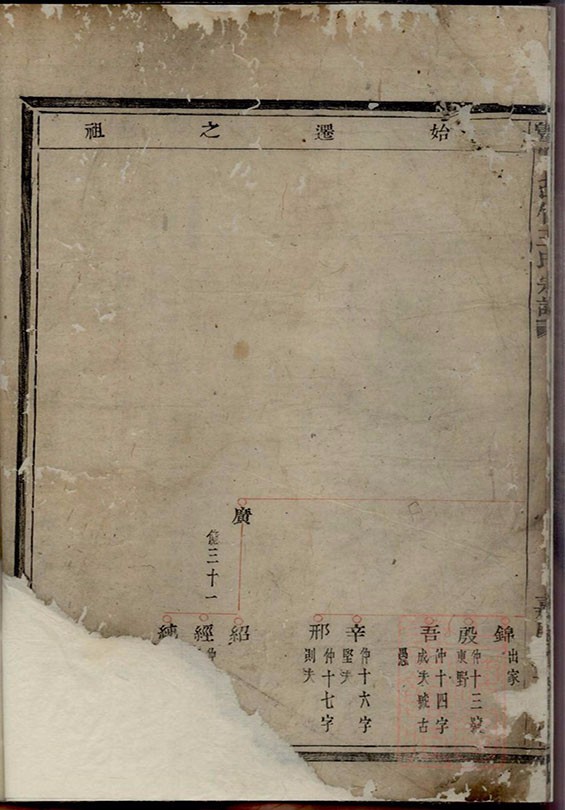 始遷之祖
錦
出家
殷
仲十三號
東野
吾
仲十四字
成夫號古
愚
辛
仲十六字
堅夫
邢
仲十七字
則夫
廣
三十一
紹
經